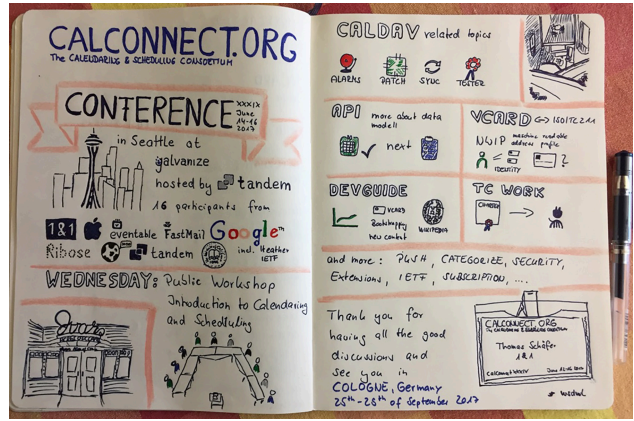 CALCONNECT.ORG
THE CALENDARING & SCHEDULING CONSORTIUM
CONFERENCE
XXXIX
June
14-16
2017
in Seattle at
galvanize
hosted by tandem
16 participants from
1&1
eventable FastMail Google
Ribose
tandem
incl. Heather
IETF
WEDNESDAY: Public Workshop
Introduction to Calendaring
and Scheduling
CALDAV related topics
ALARMS
PATCH
SYNC
TESTER
API more about data
modell
next
VCARD <-> ISO/TC211
NWIP
machine readable
address profile
IDENTITY
?
DEVGUIDE
VCARD
Bootstrapping
new content
WIKIPEDIA
TC WORK
and more: PUSH, CATEGORIES, SECURITY,
Extensions, IETF, SUBSCRIPTION, ....
Thank you for
having all the good
discussions and
see you in
COLOGNE, Germany
25th-28th of September 2017
CALCONNECT.ORG
THE CALENDARING & SCHEDULING CONSORTIUM
Thomas Schäfer
1&1
CalConnect XXXIX
June 14-16 2017